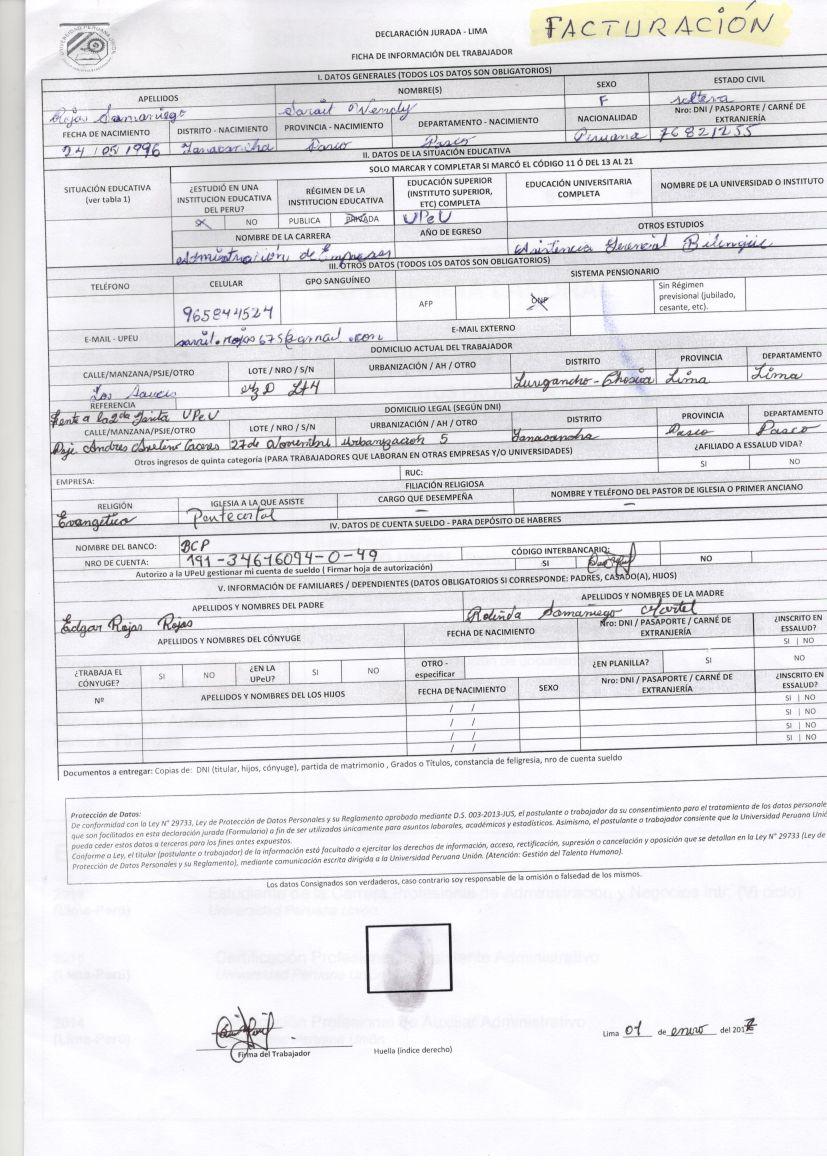 FACTURACIÓN
DECLARACIÓN JURADA - LIMA
FICHA DE INFORMACIÓN DEL TRABAJADOR
I. DATOS GENERALES (TODOS LOS DATOS SON OBLIGATORIOS)
APELLIDOS NOMBRE(S) SEXO ESTADO CIVIL
Rojas Samaniego Sarait Wendy F soltera
FECHA DE NACIMIENTO DISTRITO - NACIMIENTO PROVINCIA - NACIMIENTO DEPARTAMENTO - NACIMIENTO NACIONALIDAD Nro: DNI / PASAPORTE / CARNÉ DE EXTRANJERÍA
24 / 05 / 1996 Yanacancha Pasco Pasco Peruana 76821255
II. DATOS DE LA SITUACIÓN EDUCATIVA
SOLO MARCAR Y COMPLETAR SI MARCÓ EL CÓDIGO 11 Ó DEL 13 AL 21
SITUACIÓN EDUCATIVA (ver tabla 1) ¿ESTUDIÓ EN UNA INSTITUCION EDUCATIVA DEL PERU? RÉGIMEN DE LA INSTITUCION EDUCATIVA EDUCACIÓN SUPERIOR (INSTITUTO SUPERIOR, ETC) COMPLETA EDUCACIÓN UNIVERSITARIA COMPLETA NOMBRE DE LA UNIVERSIDAD O INSTITUTO
SI NO PUBLICA PRIVADA UPeU
NOMBRE DE LA CARRERA AÑO DE EGRESO OTROS ESTUDIOS
Administración de Empresas Asistencia Gerencial Bilingüe
III. OTROS DATOS (TODOS LOS DATOS SON OBLIGATORIOS)
TELÉFONO CELULAR GPO SANGUÍNEO SISTEMA PENSIONARIO
965844524 AFP ONP Sin Régimen previsional (jubilado, cesante, etc).
E-MAIL - UPEU E-MAIL EXTERNO
DOMICILIO ACTUAL DEL TRABAJADOR
CALLE/MANZANA/PSJE/OTRO LOTE / NRO / S/N URBANIZACIÓN / AH / OTRO DISTRITO PROVINCIA DEPARTAMENTO
Los Sauces Mz D Lt 4 Lurigancho - Chosica Lima Lima
REFERENCIA
frente a la 2da Garita UPeU DOMICILIO LEGAL (SEGÚN DNI)
CALLE/MANZANA/PSJE/OTRO LOTE / NRO / S/N URBANIZACIÓN / AH / OTRO DISTRITO PROVINCIA DEPARTAMENTO
Psje Andres Avelino Caceres 27 de Noviembre urbanizacion 5 Yanacancha Pasco Pasco
Otros ingresos de quinta categoría (PARA TRABAJADORES QUE LABORAN EN OTRAS EMPRESAS Y/O UNIVERSIDADES) ¿AFILIADO A ESSALUD VIDA?
EMPRESA: RUC: SI NO
FILIACIÓN RELIGIOSA
RELIGIÓN IGLESIA A LA QUE ASISTE CARGO QUE DESEMPEÑA NOMBRE Y TELÉFONO DEL PASTOR DE IGLESIA O PRIMER ANCIANO
Evangélica Pentecostal — —
IV. DATOS DE CUENTA SUELDO - PARA DEPÓSITO DE HABERES
NOMBRE DEL BANCO: BCP
NRO DE CUENTA: 191-34616094-0-49 CÓDIGO INTERBANCARIO:
Autorizo a la UPeU gestionar mi cuenta de sueldo ( Firmar hoja de autorización) SI NO
V. INFORMACIÓN DE FAMILIARES / DEPENDIENTES (DATOS OBLIGATORIOS SI CORRESPONDE: PADRES, CASADO(A), HIJOS)
APELLIDOS Y NOMBRES DEL PADRE APELLIDOS Y NOMBRES DE LA MADRE
Edgar Rojas Rojas Samaniego Martel
APELLIDOS Y NOMBRES DEL CÓNYUGE FECHA DE NACIMIENTO Nro: DNI / PASAPORTE / CARNÉ DE EXTRANJERÍA ¿INSCRITO EN ESSALUD?
SI | NO
¿TRABAJA EL CÓNYUGE? SI NO ¿EN LA UPeU? SI NO OTRO - especificar ¿EN PLANILLA? SI NO
Nº APELLIDOS Y NOMBRES DEL LOS HIJOS FECHA DE NACIMIENTO SEXO Nro: DNI / PASAPORTE / CARNÉ DE EXTRANJERÍA ¿INSCRITO EN ESSALUD?
/ / SI | NO
/ / SI | NO
/ / SI | NO
/ / SI | NO
Documentos a entregar: Copias de: DNI (titular, hijos, cónyuge), partida de matrimonio , Grados o Títulos, constancia de feligresia, nro de cuenta sueldo
Protección de Datos:
De conformidad con la Ley N° 29733, Ley de Protección de Datos Personales y su Reglamento aprobado mediante D.S. 003-2013-JUS, el postulante o trabajador da su consentimiento para el tratamiento de los datos personale
que son facilitados en esta declaración jurada (Formulario) a fin de ser utilizados únicamente para asuntos laborales, académicos y estadísticos. Asimismo, el postulante o trabajador consiente que la Universidad Peruana Unió
pueda ceder estos datos a terceros para los fines antes expuestos.
Conforme a Ley, el titular (postulante o trabajador) de la información está facultado a ejercitar los derechos de información, acceso, rectificación, supresión o cancelación y oposición que se detallan en la Ley N° 29733 (Ley de
Protección de Datos Personales y su Reglamento), mediante comunicación escrita dirigida a la Universidad Peruana Unión. (Atención: Gestión del Talento Humano).
Los datos Consignados son verdaderos, caso contrario soy responsable de la omisión o falsedad de los mismos.
Lima 01 de enero del 2017
Firma del Trabajador Huella (índice derecho)